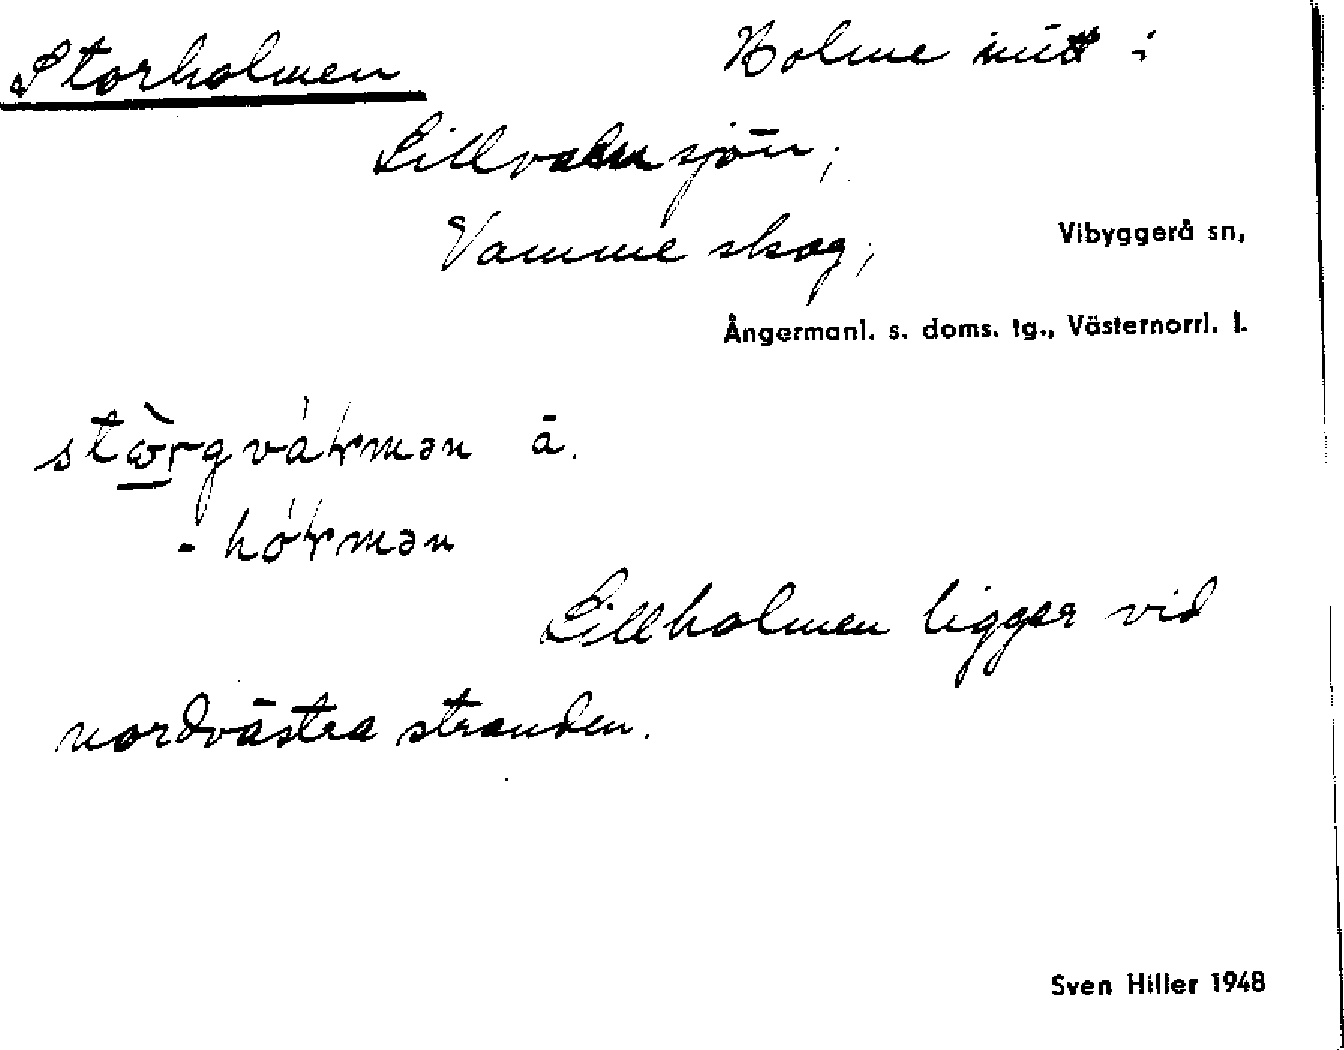 Storholmen Holme mitt i
Lillvalmsjön,
Vamme skog, Vibyggerå sn,
Ångermanl. s. doms. tg., Västernorrl. l.
ā.
Lillholmen ligger vid
nordvästra stranden.
Sven Hiller 1948